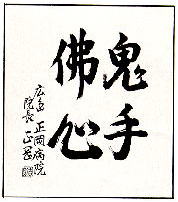 鬼手
佛心
広島 正岡病院
院長 正岡